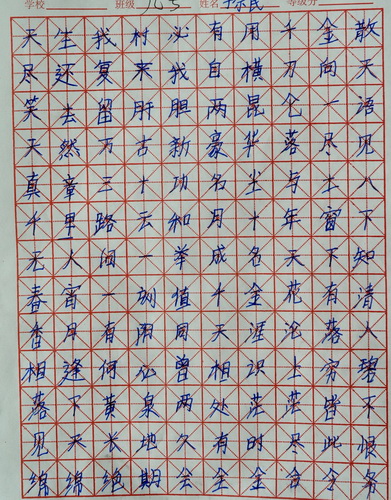 学校 班级 九3 姓名 等级分
天生我材必有用千金散
尽还复来我自横刀向天
笑去留肝胆两昆仑一语
天然万古新豪华落尽见
真章三十功名尘与土八
千里路云和月十年窗下
无人问一举成名天下知
春宵一刻值千金花有清
香月有阴同天涯沦落人
相逢何必曾相识上穷碧
落下黄泉两处茫茫皆不
见天长地久有时尽此恨
绵绵绝期会全金合全务